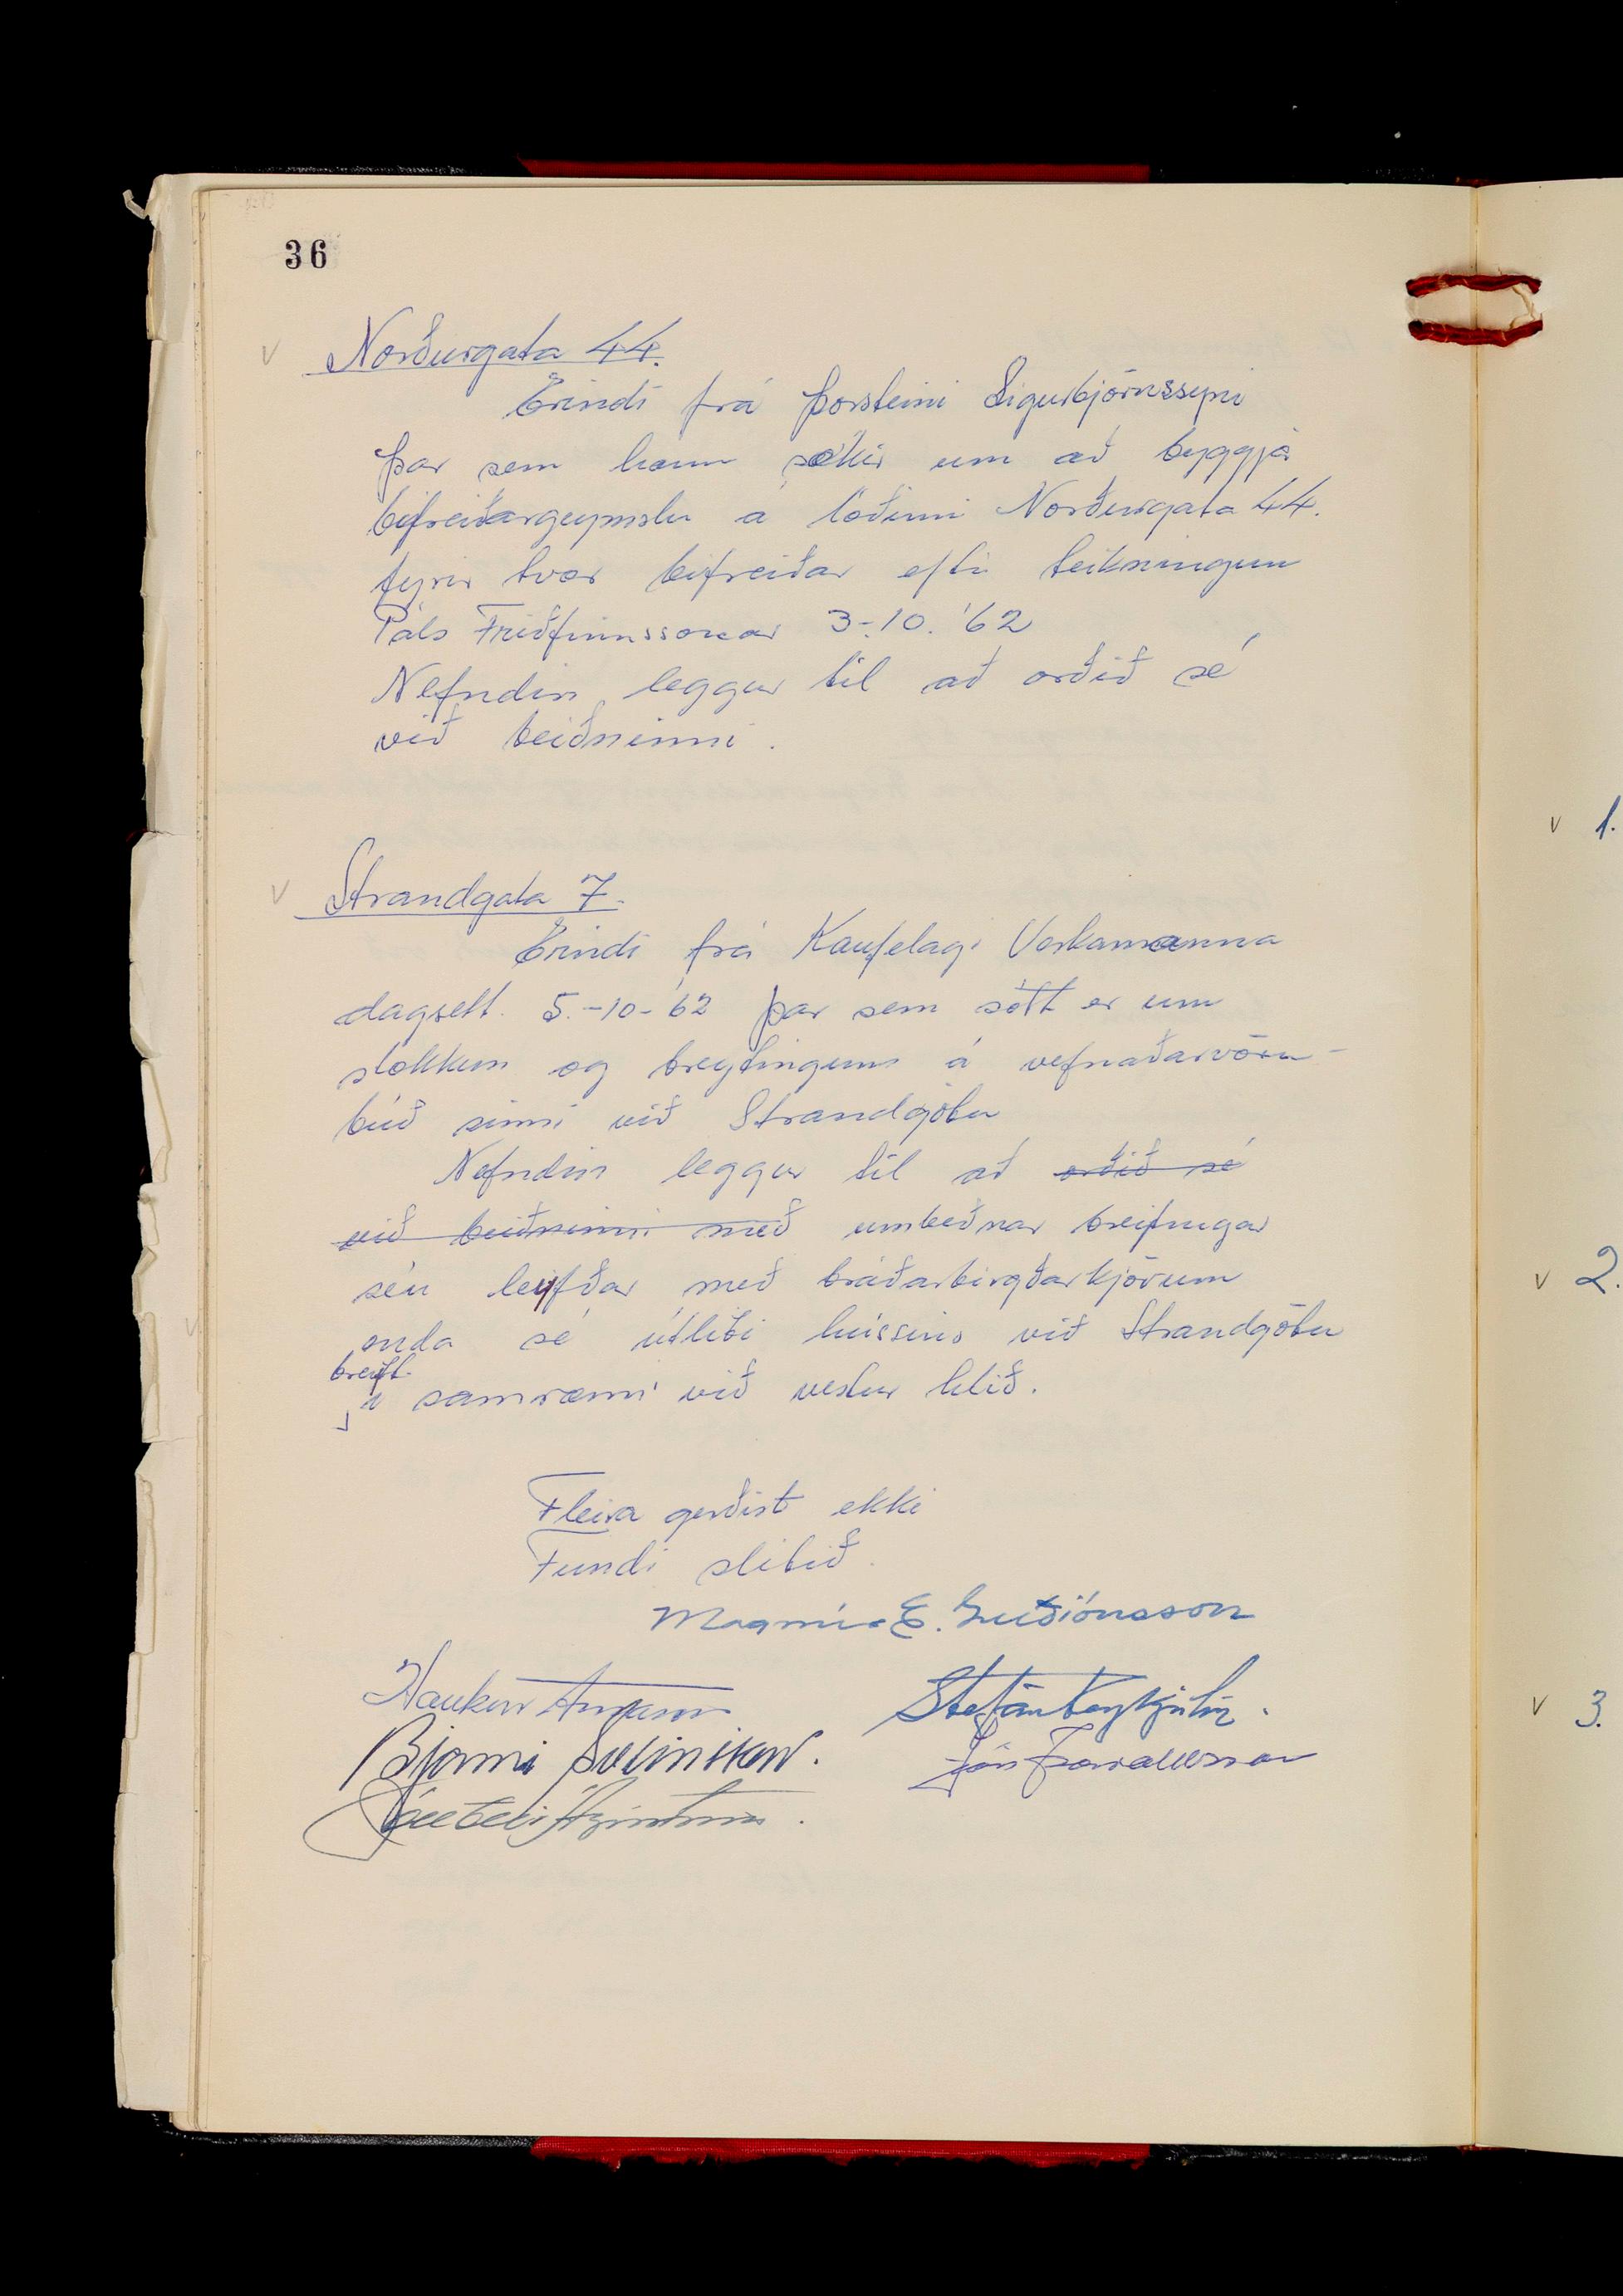 36
v Norðurgata 44.
Erindi frá Þorsteini Sigurbjörnssyni
þar sem hann sækir um að byggja
bifreiðargeymslu á lóðinni Norðurgata 44.
fyrir tvær bifreiðar eftir teikningum
Páls Friðfinnssonar 3-.10. '62
Nefndin leggur til að orðið sé
við beiðninni.
v Strandgata 7.
Erindi frá Kaupfelagi Verkamanna
dagsett. 5.-10-'62 þar sem sótt er um
stækkun og breytingum á vefnaðarvöru-
búð sinni við Strandgötu
Nefndin leggur til að orðið sé
við beiðninni með umbeðnar breitingar
séu leyfðar með bráðarbirgðarkjörum
enda sé útliti hússins við Strandgötu
breytt
í samræmi við vestur hlið.
Fleira gerðist ekki
Fundi slitið.
Magnús E. Guðjónsson
Haukur Árnason
Stefán Reykjalín.
Bjarni Sveinsson.
Jón Þorvaldsson
v 1.
v 2.
v 3.